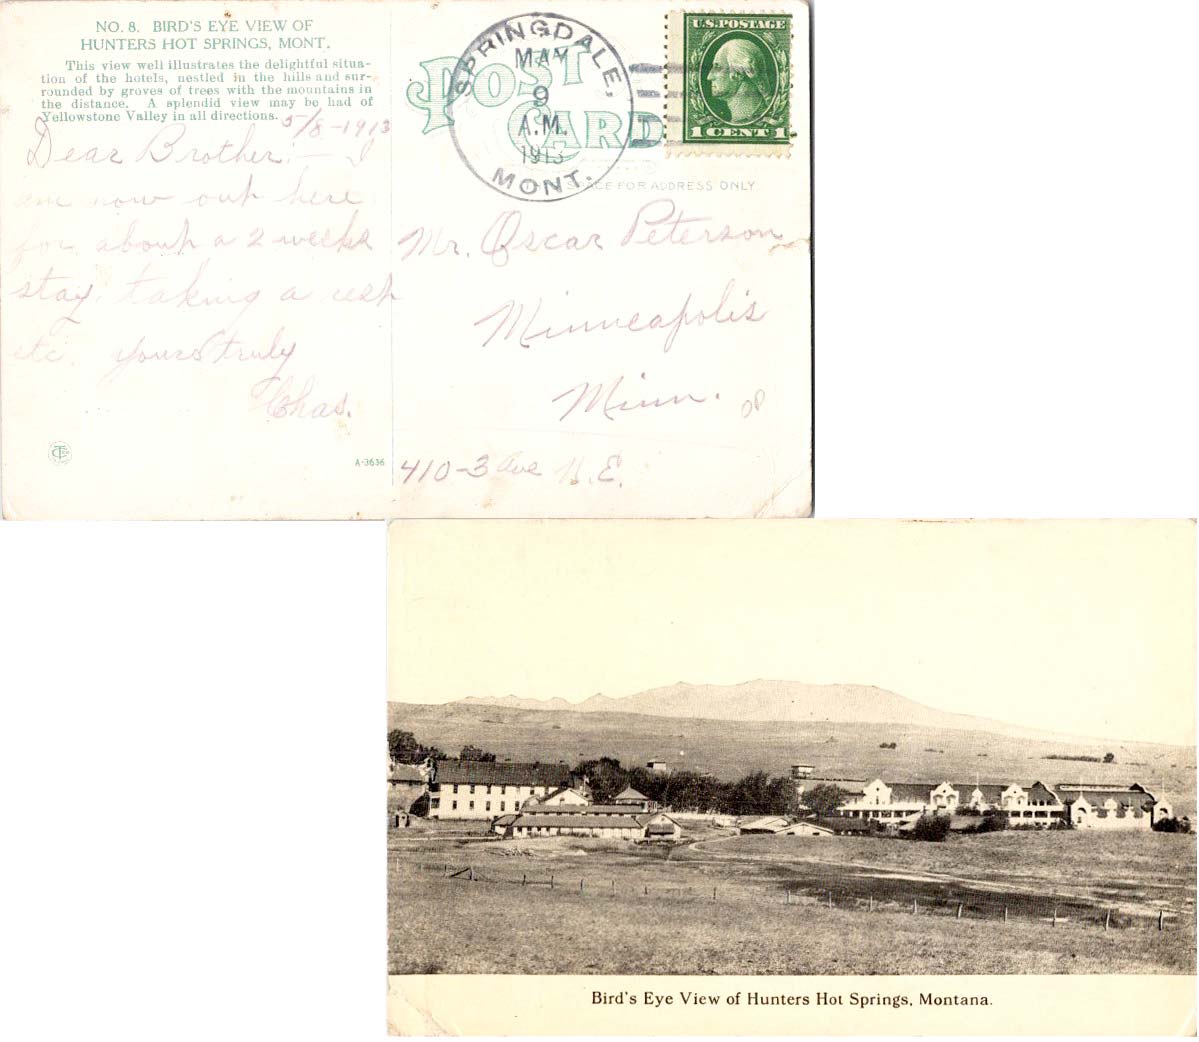 NO. 8. BIRD'S EYE VIEW OF
HUNTERS HOT SPRINGS, MONT.
This view well illustrates the delightful situa-
tion of the hotels, nestled in the hills and sur-
rounded by groves of trees with the mountains in
the distance. A splendid view may be had of
Yellowstone Valley in all directions.
5/8-1913
Dear Brother:— I
am now out here
for about a 2 weeks
stay, taking a rest
etc. yours truly
Chas.
A-3636
POST
CARD
SPRINGDALE,
MAY
9
A.M.
1913
MONT.
U.S. POSTAGE
1 CENT 1
SPACE FOR ADDRESS ONLY
Mr. Oscar Peterson
Minneapolis
Minn.
410-3 Ave N.E.
Bird's Eye View of Hunters Hot Springs, Montana.